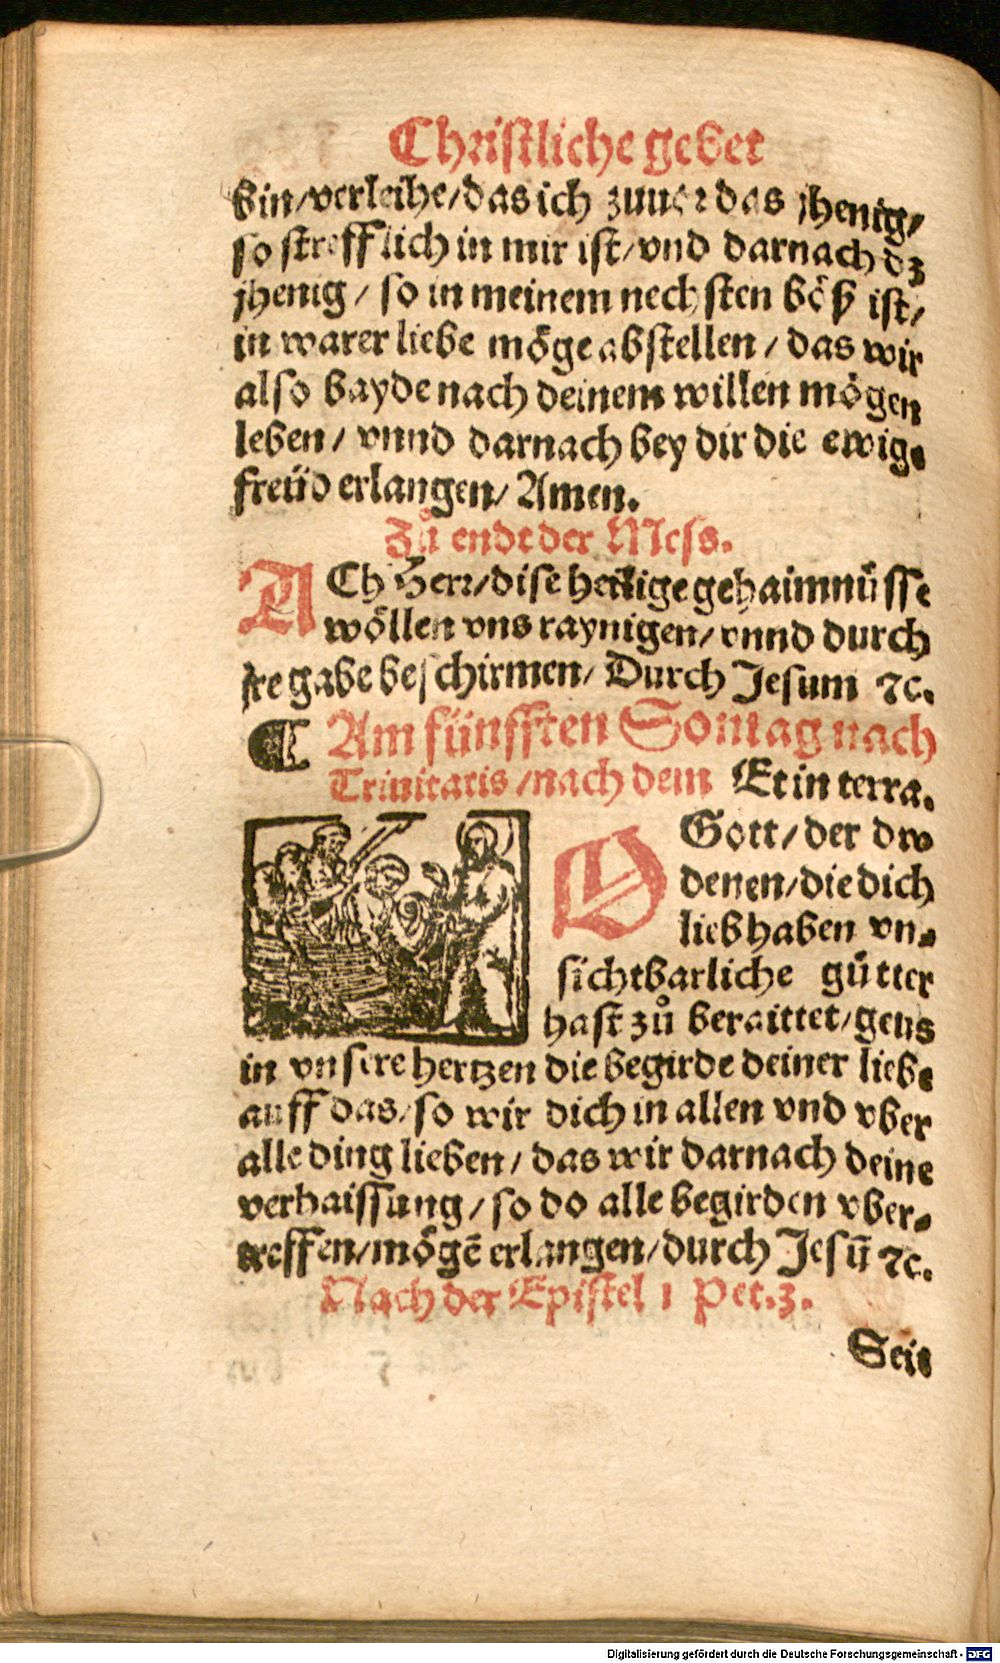 Christliche gebet
bin/verleihe/das ich zuuor das jhenig/
so strefflich in mir ist/vnd darnach dz
jhenig / so in meinem nechsten böß ist/
in warer liebe möge abstellen / das wir
also bayde nach deinem willen mögen
leben / vnnd darnach bey dir die ewig
freüd erlangen/ Amen.
Zů endt der Mess.
ACh Herr/dise heilige gehaimnüsse
wöllen vns raynigen/ vnnd durch
jre gabe beschirmen/ Durch Jesum ⁊c.
¶ Am fünfften Sontag nach
Trinitatis /nach dem Et in terra.
O Gott/ der dw
denen/die dich
lieb haben vn-
sichtbarliche gütter
hast zů beraittet/geus
in vnsere hertzen die begirde deiner liebe
auff das/so wir dich in allen vnd vber
alle ding lieben/ das wir darnach deine
verhaissung / so do alle begirden vber-
treffen/mögē erlangen/durch Jesū ⁊c.
Nach der Epistel 1 Pet.3.
Seit
Digitalisierung gefördert durch die Deutsche Forschungsgemeinschaft - DFG